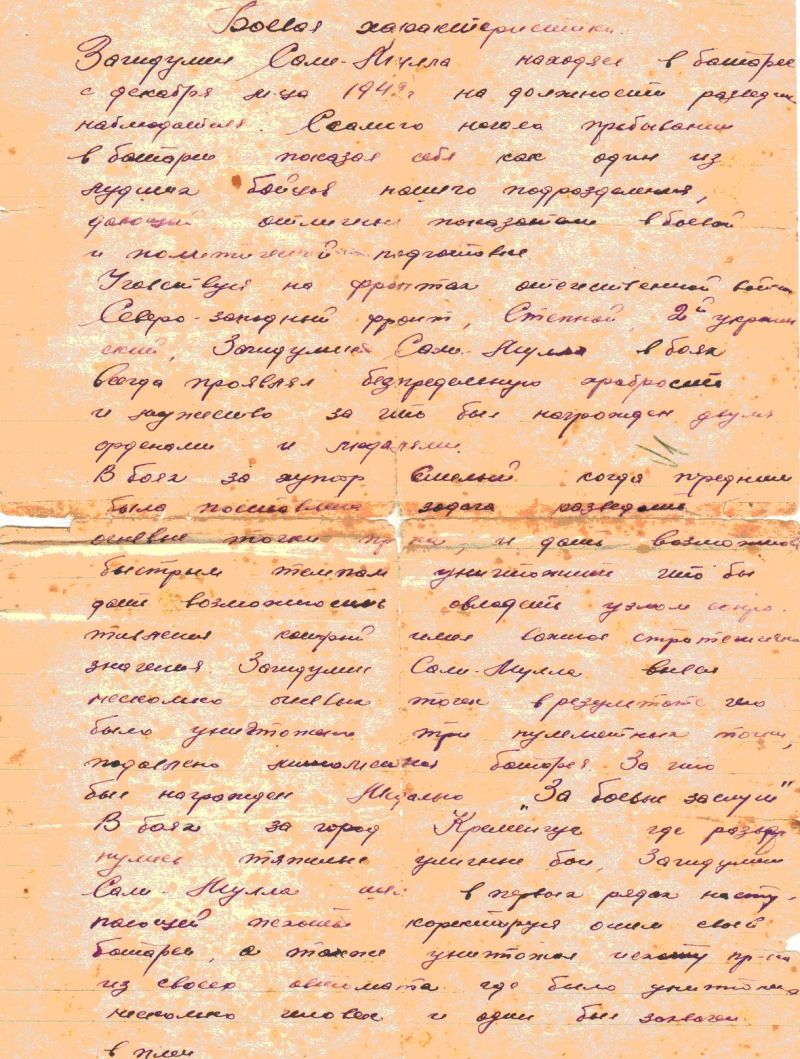 Боевая характеристика
Загидулин Сали-Мулла находяс в батарее
с декабря м-ца 1942г на должности разведчик
наблюдателя. Ссамого начала пребывания
в батареи показал себя как один из
лудших бойцов нашего подразделения,
дающий отличные показатели в боевой
и политической подготовке
Участвуя на фронтах отечественной войны
Северо-западный фронт, Степной, 2ой украин
ский, Загидулин Сали-Мулла в боях
всегда проявлял безпредельную храбрость
и мужество за что был награжден двумя
орденами и медалями.
В боях за хутор Смелый когда перед ним
была поставлена задача разведать
огневые точки и дать возможность
быстрым темпам уничтожить что бы
дать возможность овладеть узлом сопро-
тивления который имел важное стратегическ
значения. Загидулин Сали-Мулла выявил
несколько огневых точек в результате чего
было уничтожено три пулеметных точки,
подавлено минометная батарея. За что
был награжден Медалью "За боевые заслуги"
В боях за город Кременчуг где развер
нулись тяжелые уличные бои, Загидулин
Сали-Мулла шел в первых рядах насту-
пающей пехоты коректируя огнем своей
батареи, а также уничтожая пехоту пр-ка
из своего автомата где было уничтожено
несколько человек и один был захвачен
в плен